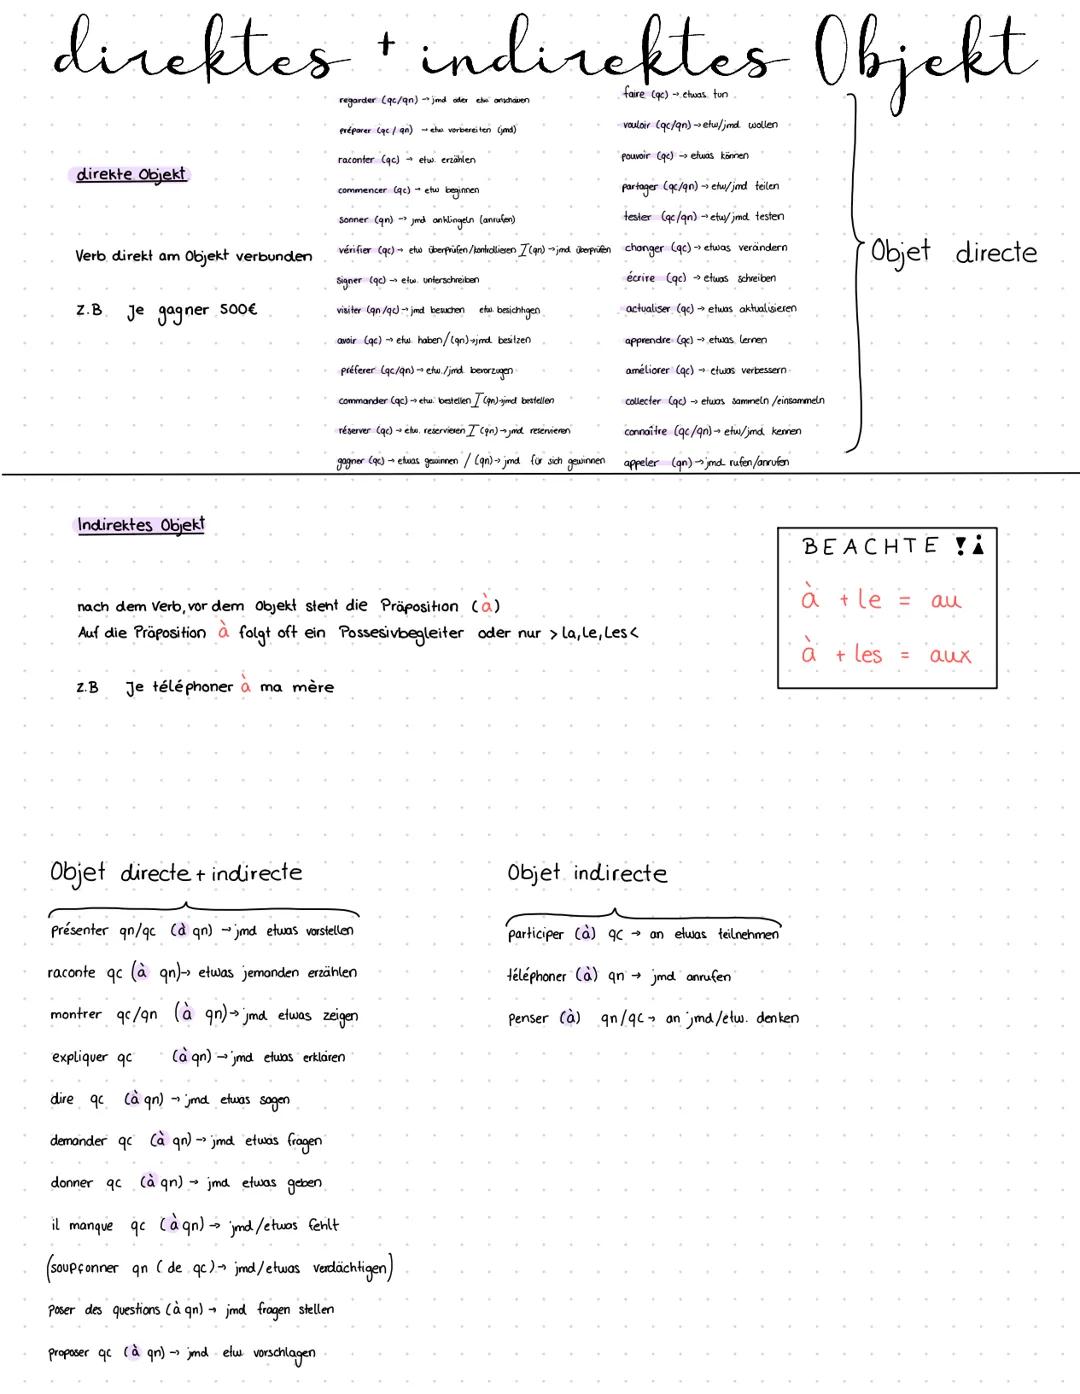 direktes + indirektes Objekt
direkte Objekt
Verb direkt am Objekt verbunden
z.B. Je gagner 500€
regarder (qc/qn) → jmd oder etw anschauen
préparer (qc / qn) → etw vorbereiten (jmd)
raconter (qc) → etw. erzählen
commencer (qc) → etw beginnen
sonner (qn) → jmd anklingeln (anrufen)
vérifier (qc) → etw überprüfen/kontrollieren I (qn) → jmd überprüfen
signer (qc) → etw. unterschreiben
visiter (qn/qc) → jmd besuchen etw besichtigen
avoir (qc) → etw. haben/(qn) → jmd besitzen
préferer (qc/qn) → etw./jmd. bevorzugen
commander (qc) → etw. bestellen I (qn) → jmd bestellen
réserver (qc) → etw. reservieren I (qn) → jmd. reservieren
gagner (qc) → etwas gewinnen / (qn) → jmd für sich gewinnen
faire (qc) → etwas tun
vouloir (qc/qn) → etw/jmd wollen
pouvoir (qc) → etwas können
partager (qc/qn) → etw/jmd teilen
tester (qc/qn) → etw/jmd testen
changer (qc) → etwas verändern
écrire (qc) → etwas schreiben
actualiser (qc) → etwas aktualisieren
apprendre (qc) → etwas lernen
améliorer (qc) → etwas verbessern
collecter (qc) → etwas sammeln /einsammeln
connaître (qc/qn) → etw/jmd kennen
appeler (qn) → jmd rufen/anrufen
Objet directe
Indirektes Objekt
nach dem Verb, vor dem Objekt steht die Präposition (à)
Auf die Präposition à folgt oft ein Possesivbegleiter oder nur > la, le, les <
z.B Je téléphoner à ma mère
BEACHTE !¡
à + le = au
à + les = aux
Objet directe + indirecte
présenter qn/qc (à qn) → jmd etwas vorstellen
raconte qc (à qn) → etwas jemanden erzählen
montrer qc/qn (à qn) → jmd etwas zeigen
expliquer qc (à qn) → jmd etwas erklären
dire qc (à qn) → jmd etwas sagen
demander qc (à qn) → jmd etwas fragen
donner qc (à qn) → jmd etwas geben
il manque qc (à qn) → jmd/etwas fehlt
(soupçonner qn (de qc) → jmd/etwas verdächtigen)
poser des questions (à qn) → jmd fragen stellen
proposer qc (à qn) → jmd etw vorschlagen
Objet indirecte
participer (à) qc → an etwas teilnehmen
téléphoner (à) qn → jmd anrufen
penser (à) qn/qc → an jmd/etw. denken